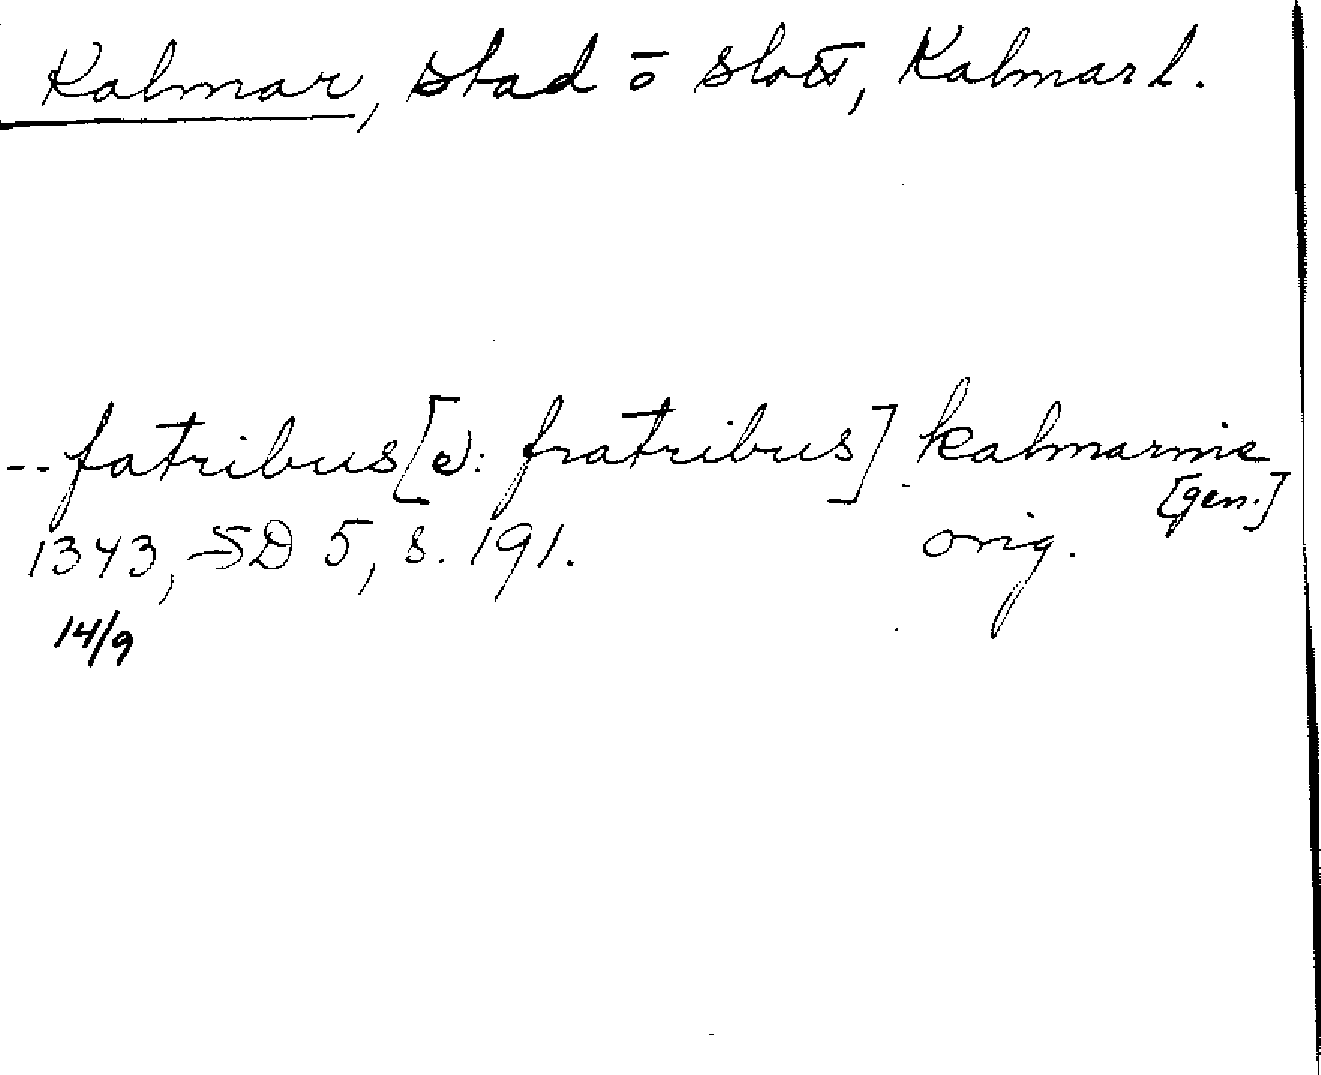 Kalmar, stad ō slott, Kalmar l.
-- fatribus [ɔ: fratribus] kalmarnie
[gen.]
1343, SD 5, s. 191. orig.
14/9